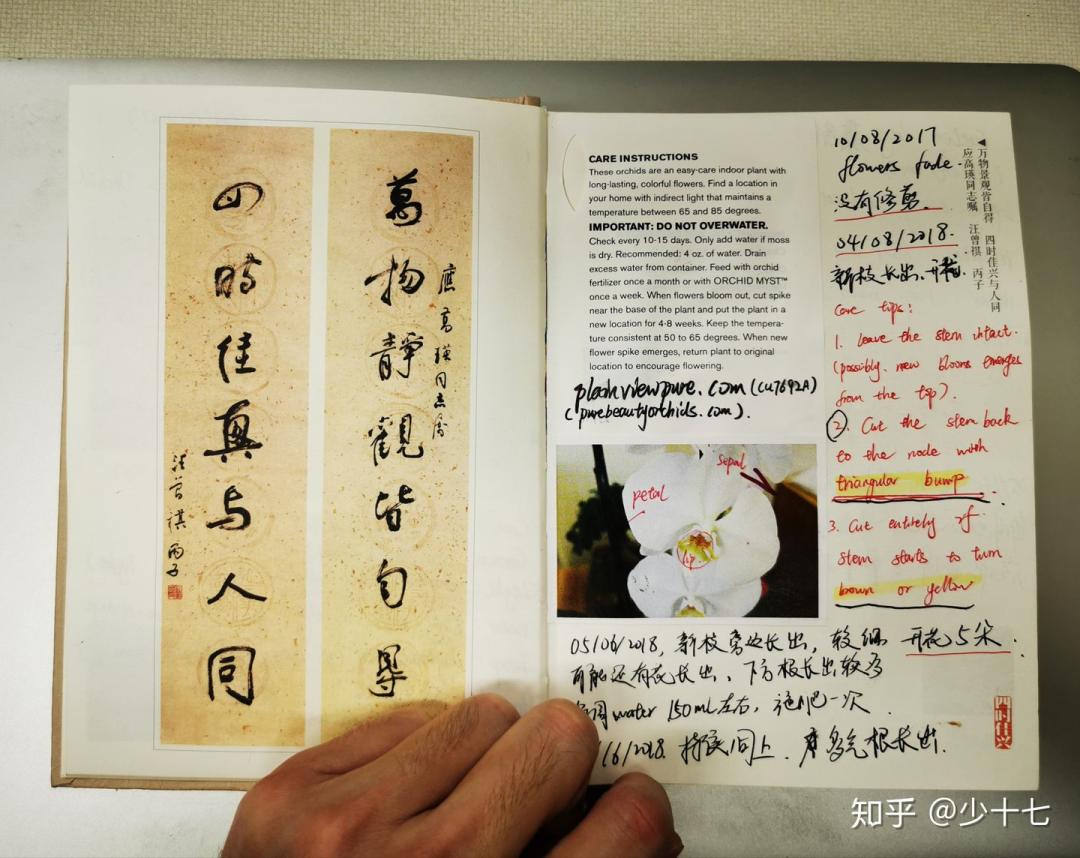 萬物靜觀皆自得
應高瑛同志屬
四時佳興与人同
汪曾祺丙子
CARE INSTRUCTIONS
These orchids are an easy-care indoor plant with
long-lasting, colorful flowers. Find a location in
your home with indirect light that maintains a
temperature between 65 and 85 degrees.
IMPORTANT: DO NOT OVERWATER.
Check every 10-15 days. Only add water if moss
is dry. Recommended: 4 oz. of water. Drain
excess water from container. Feed with orchid
fertilizer once a month or with ORCHID MYST™
once a week. When flowers bloom out, cut spike
near the base of the plant and put the plant in a
new location for 4-8 weeks. Keep the tempera-
ture consistent at 50 to 65 degrees. When new
flower spike emerges, return plant to original
location to encourage flowering.
(cu7692A)
(purebeautyorchids.com).
petal
sepal
lip
◀万物景观皆自得 四时佳兴与人同
应高瑛同志嘱 汪曾祺 丙子
10/08/2017
flowers fade.
没有修剪.
04/08/2018.
新枝长出、开花.
Care tips:
1. Leave the stem intact.
(possibly new blooms emerges
from the top).
2. Cut the stem back
to the node with
triangular bump.
3. Cut entirely if
stem starts to turn
brown or yellow
05/06/2018, 新枝旁边长出, 较细 开花5朵.
可能还有花长出、下方根长出较多
water 150mL左右, 施肥一次.
/6/2018. 同上. 多气根长出.
四时佳兴
知乎 @少十七